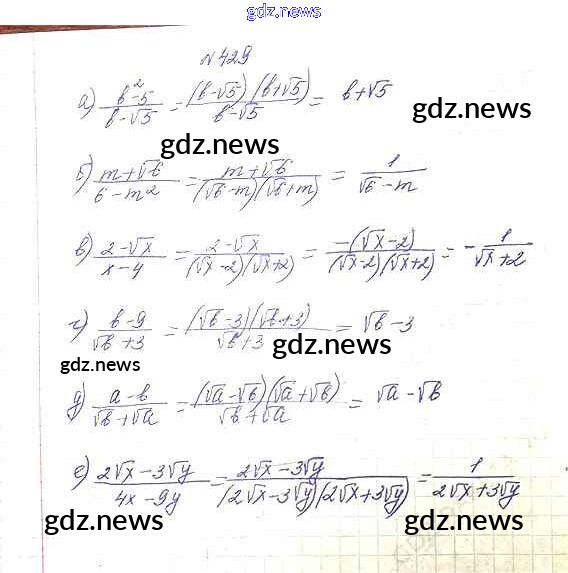 gdz.news
№ 429
а) (b²-5)/(b-√5) = ((b-√5)(b+√5))/(b-√5) = b+√5
gdz.news
gdz.news
б) (m+√6)/(6-m²) = (m+√6)/((√6-m)(√6+m)) = 1/(√6-m)
gdz.news
в) (2-√x)/(x-4) = (2-√x)/((√x-2)(√x+2)) = (-(√x-2))/((√x-2)(√x+2)) = -1/(√x+2)
г) (b-9)/(√b+3) = ((√b-3)(√b+3))/(√b+3) = √b-3
gdz.news
gdz.news
д) (a-b)/(√b+√a) = ((√a-√b)(√a+√b))/(√b+√a) = √a-√b
е) (2√x-3√y)/(4x-9y) = (2√x-3√y)/((2√x-3√y)(2√x+3√y)) = 1/(2√x+3√y)
gdz.news
gdz.news
gdz.news